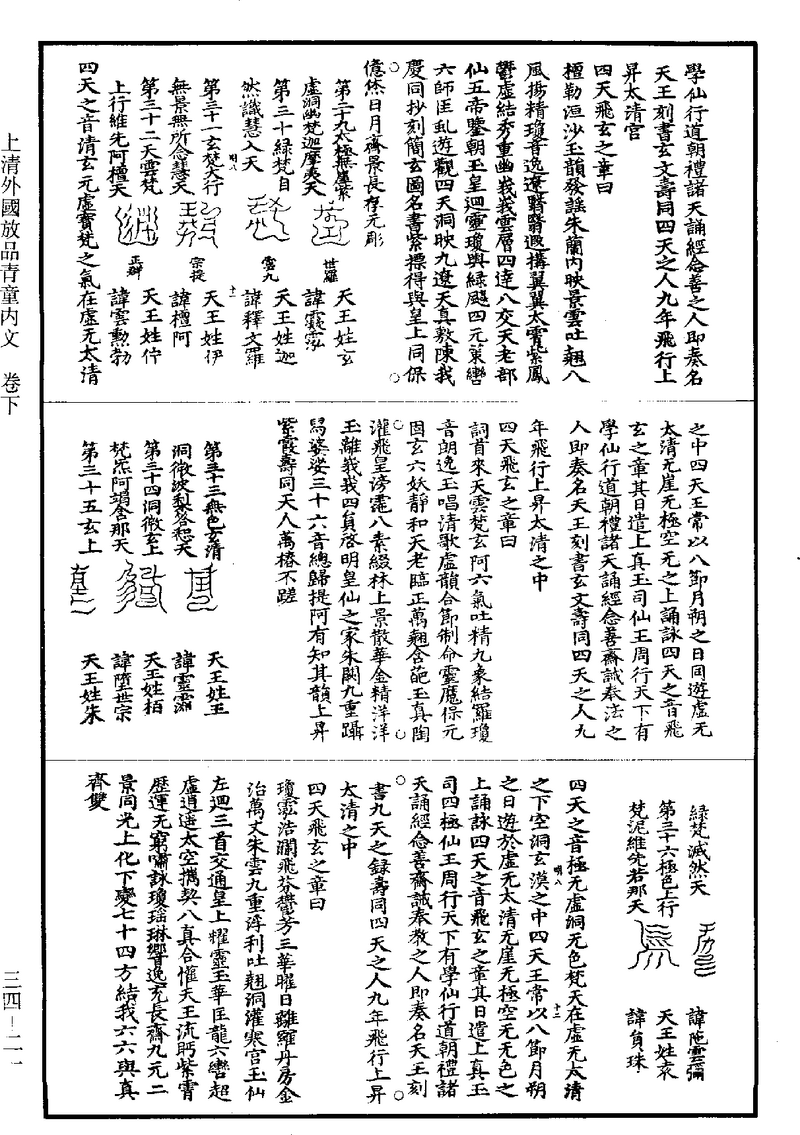 學仙行道朝禮諸天誦經念善之人即奏名
天王刻書玄文壽同四天之人九年飛行上
昇太清宮
四天飛玄之章曰
檀勒洹沙玉韻發謠朱蘭內映景雲吐翹八
風揚精瓊音逸遼翳翳遐構翼翼太霄紫鳳
鬱虛結秀重幽峩峩雲層四達八交天老部
仙五帝鑒朝玉皇迴靈瓊與綠飈四元策轡
六師匡虬遊觀四天洞映九遼天真敷陳我
慶同抄刻簡玄圖名書紫標得與皇上同保
億怸日月齊景長存元彫
第二十九太極無崖紫
虛洞幽梵迦摩夷天
世羅
天王姓玄
諱靈寂泓
第三十綠梵自
然識慧入天
雲九
天王姓迦
諱釋文羅
第三十一玄梵大行
無景無所念慧天
宗提
天王姓伊
諱檀阿
第三十二天雲梵
上行維先阿檀天
正群
天王姓佇
諱雲勲勃
四天之音清玄元虛寶梵之氣在虛无太清
之中四天王常以八節月朔之日同遊虛无
太清无崖无極空无之上誦詠四天之音飛
玄之章其日遣上真玉司仙王周行天下有
學仙行道朝禮諸天誦經念善齋誠奉法之
人即奏名天王刻書玄文壽同四天之人九
年飛行上昇太清之中
四天飛玄之章曰
詞首來天雲梵玄阿六氣吐精九象結羅瓊
音朗逸玉唱清歌虛韻合節制命靈魔保元
固玄六妖靜和天老臨正萬翹含葩玉真陶
灌飛皇滂靄八素綴林上景散華金精洋洋
玉離峩峩四負啓明皇仙之家朱闕九重躡
舄婆娑三十六音總歸提阿有知其韻上昇
紫霞壽同天人萬椿不蹉
第三十三無色玄清
洞微波梨答惒天
天王姓王
諱靈霈
第三十四洞微玄上
梵炁阿竭含那天
天王姓栢
諱墮世宗
第三十五玄上
天王姓朱
綠梵滅然天
諱陁雲彌
第三十六極色上行
梵泥維先若那天
天王姓哀
諱負珠
四天之音極无虛洞无色梵天在虛无太清
之下空洞玄漠之中四天王常以八節月朔
之日遊於虛无太清无崖无極空无无色之
上誦詠四天之音飛玄之章其日遣上真玉
司四極仙王周行天下有學仙行道朝禮諸
天誦經念善齋誠奉教之人即奏名天王刻
書九天之録壽同四天之人九年飛行上昇
太清之中
四天飛玄之章曰
瓊泓浩瀾飛芬欝芳三華曜日離羅丹房金
治萬丈朱雲九重浮利吐翹洞灌寒宮玉仙
左迴三首交通皇上耀靈玉華匡龍六轡超
虛逍遥太空攜契八真合懽天王流眄紫霄
歷運无窮嘯詠瓊瑶琳響逸充長齋九元二
景同光上化下變七十四方結我六六與真
齊雙
上清外國放品青童內文 卷下
三四－二一